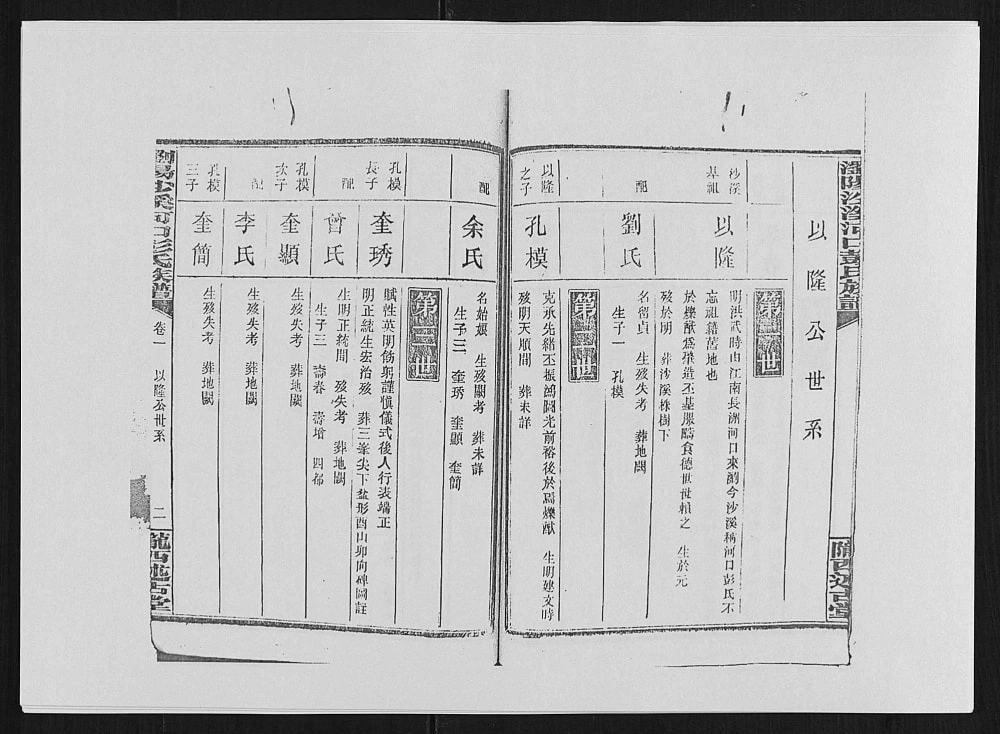 瀏陽沙溪河口彭氏族譜
隴西述古堂
以隆公世系
第一世
沙溪基祖
以隆
明洪武時由江南長洲河口來瀏今沙溪稱河口彭氏不
忘祖籍舊地也
於爍猷為肇造丕基服疇食德世世賴之 生於元
歿於明 葬沙溪株樹下
配
劉氏
名留貞 生歿失考 葬地闕
生子一 孔模
第二世
以隆之子
孔模
克承先緒丕振鴻圖光前裕後於焉爍猷 生明建文時
歿明天順間 葬未詳
配
余氏
名始娘 生歿闕考 葬未詳
生子三 奎琇 奎顯 奎簡
第三世
孔模長子
奎琇
賦性英明飭躬謹慎儀式後人行表端正
明正統生宏治歿 葬三峯尖下盆形酉山卯向碑圖註
配
曾氏
生明正統間 歿失考 葬地闕
生子三 壽春 壽增 四郎
孔模次子
奎顯
生歿失考 葬地闕
配
李氏
生歿失考 葬地闕
孔模三子
奎簡
生歿失考 葬地闕
瀏陽沙溪河口彭氏族譜
卷一
以隆公世系
二
隴西述古堂